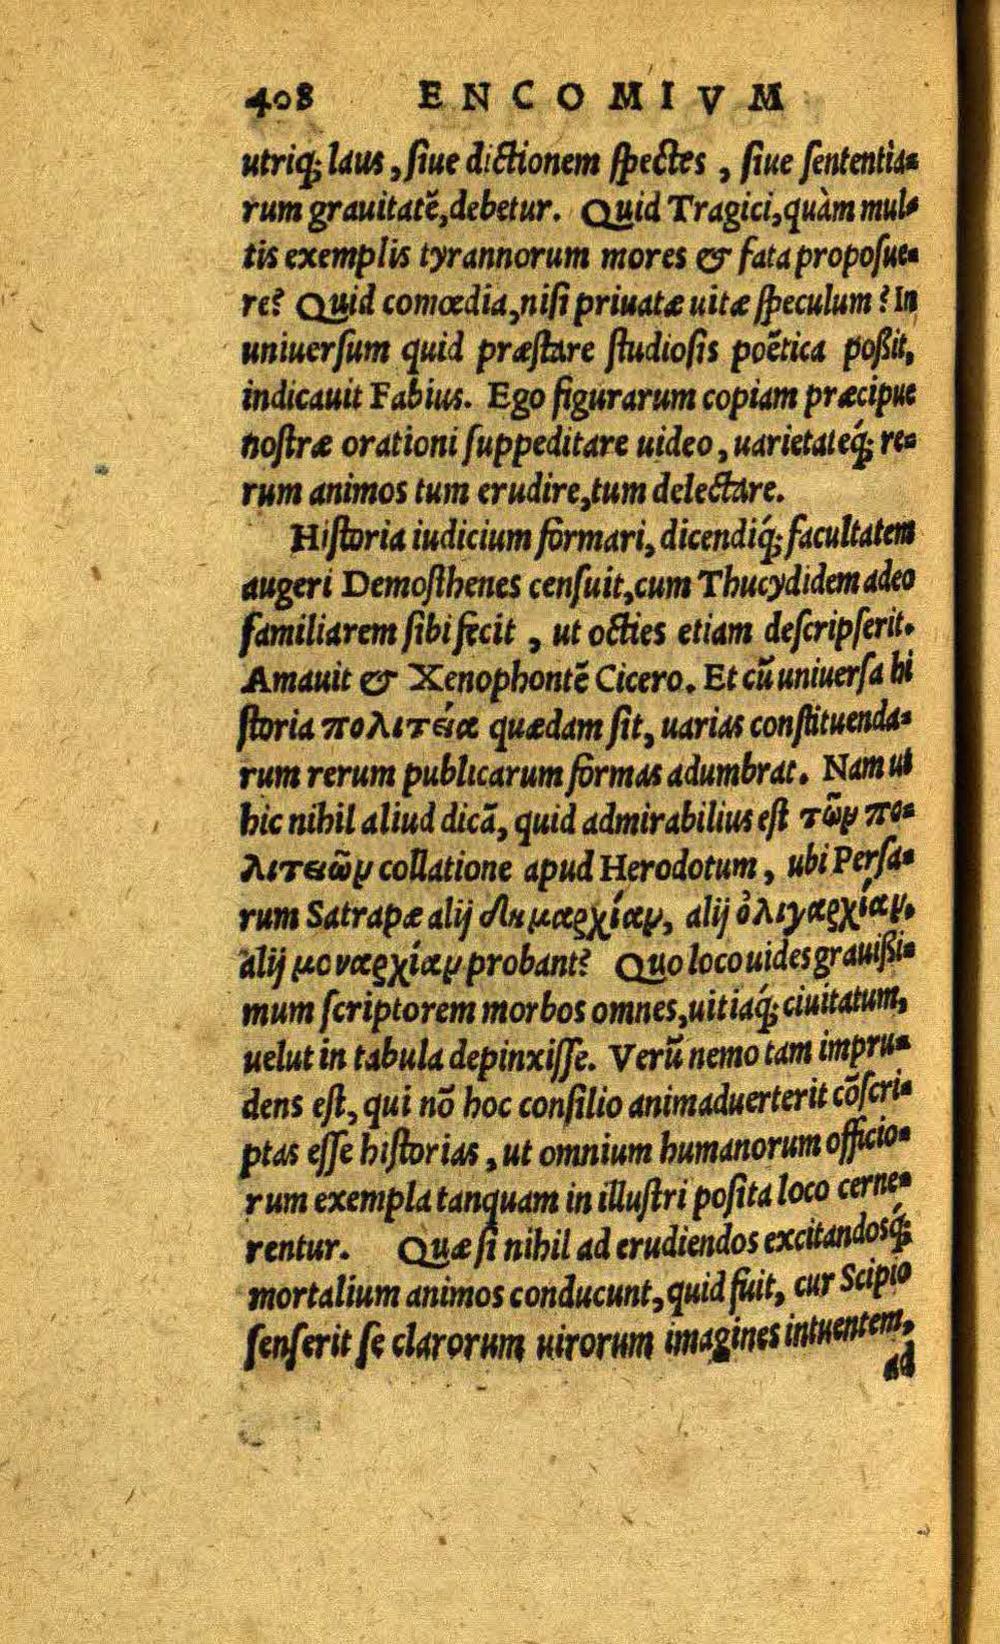 408 ENCOMIVM
utriq; laus, ſiue dictionem ſpectes, ſiue ſententia-
rum grauitatē, debetur. Quid Tragici, quàm mul-
tis exemplis tyrannorum mores & fata propoſue-
re? Quid comœdia, niſi priuatæ uitæ ſpeculum? In
uniuerſum quid præſtare ſtudioſis poëtica poßit,
indicauit Fabius. Ego figurarum copiam præcipue
noſtræ orationi ſuppeditare uideo, uarietateq́; re-
rum animos tum erudire, tum delectare.
Hiſtoria iudicium formari, dicendiq́; facultatem
augeri Demoſthenes cenſuit, cum Thucydidem adeo
familiarem ſibi fecit, ut octies etiam deſcripſerit.
Amauit & Xenophontē Cicero. Et cū uniuerſa hi
ſtoria πολιτεία quædam ſit, uarias conſtituenda-
rum rerum publicarum formas adumbrat. Nam ut
hic nihil aliud dicā, quid admirabilius eſt τῶν πο-
λιτειῶν collatione apud Herodotum, ubi Perſa-
rum Satrapæ alij δημαρχίαν, alij ὀλιγαρχίαν,
alij μοναρχίαν probant? Quo loco uides grauißi-
mum ſcriptorem morbos omnes, uitiaq́; ciuitatum,
uelut in tabula depinxiſſe. Verū nemo tam impru-
dens eſt, qui nō hoc conſilio animaduerterit cōſcri-
ptas eſſe hiſtorias, ut omnium humanorum officio-
rum exempla tanquam in illuſtri poſita loco cerne-
rentur. Quæ ſi nihil ad erudiendos excitandosq́;
mortalium animos conducunt, quid fuit, cur Scipio
ſenſerit ſe clarorum uirorum imagines intuentem,
ad